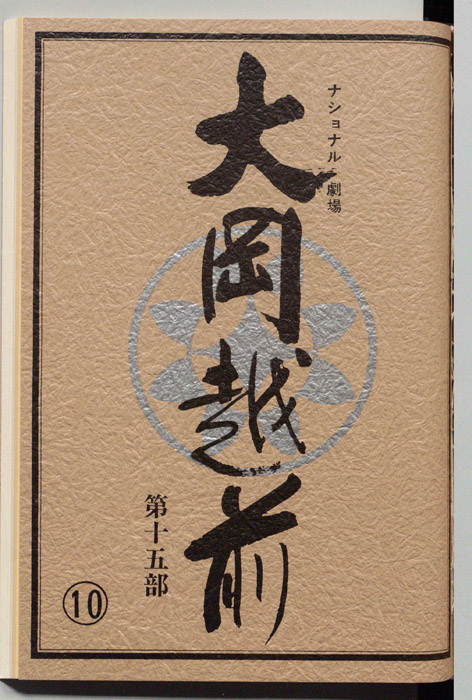 ナショナル劇場
大岡越前
第十五部
10